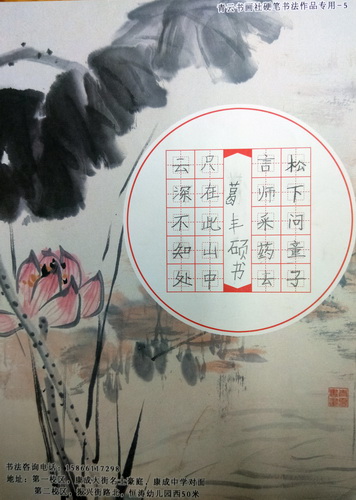 青云书画社硬笔书法作品专用-5
松下问童子
言师采药去
葛丰硕书
只在此山中
去深不知处
书法咨询电话：15866117298
地址：第一校区，康成大街名士豪庭，康成中学对面
第二校区，振兴街路北，恒涛幼儿园西50米